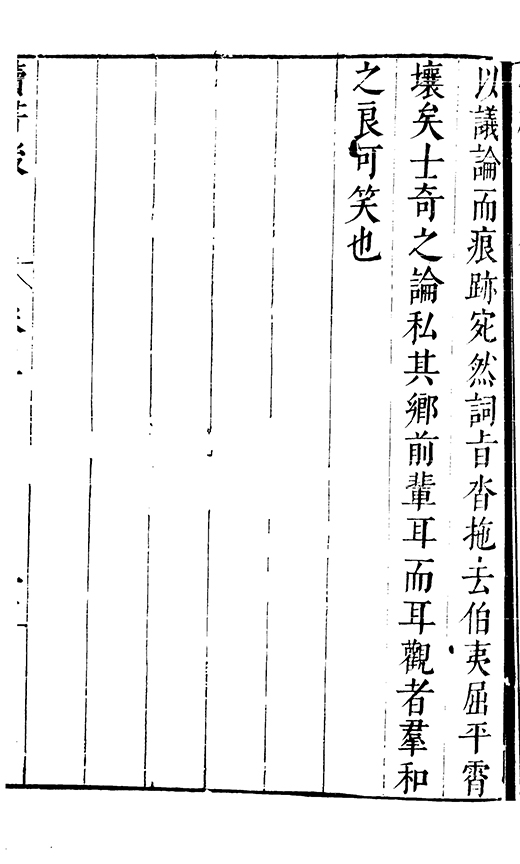 以議論而痕跡宛然詞㫖沓拖去伯夷屈平霄
壤矣士奇之論私其鄉前輩耳而耳觀者羣和
之良可笑也